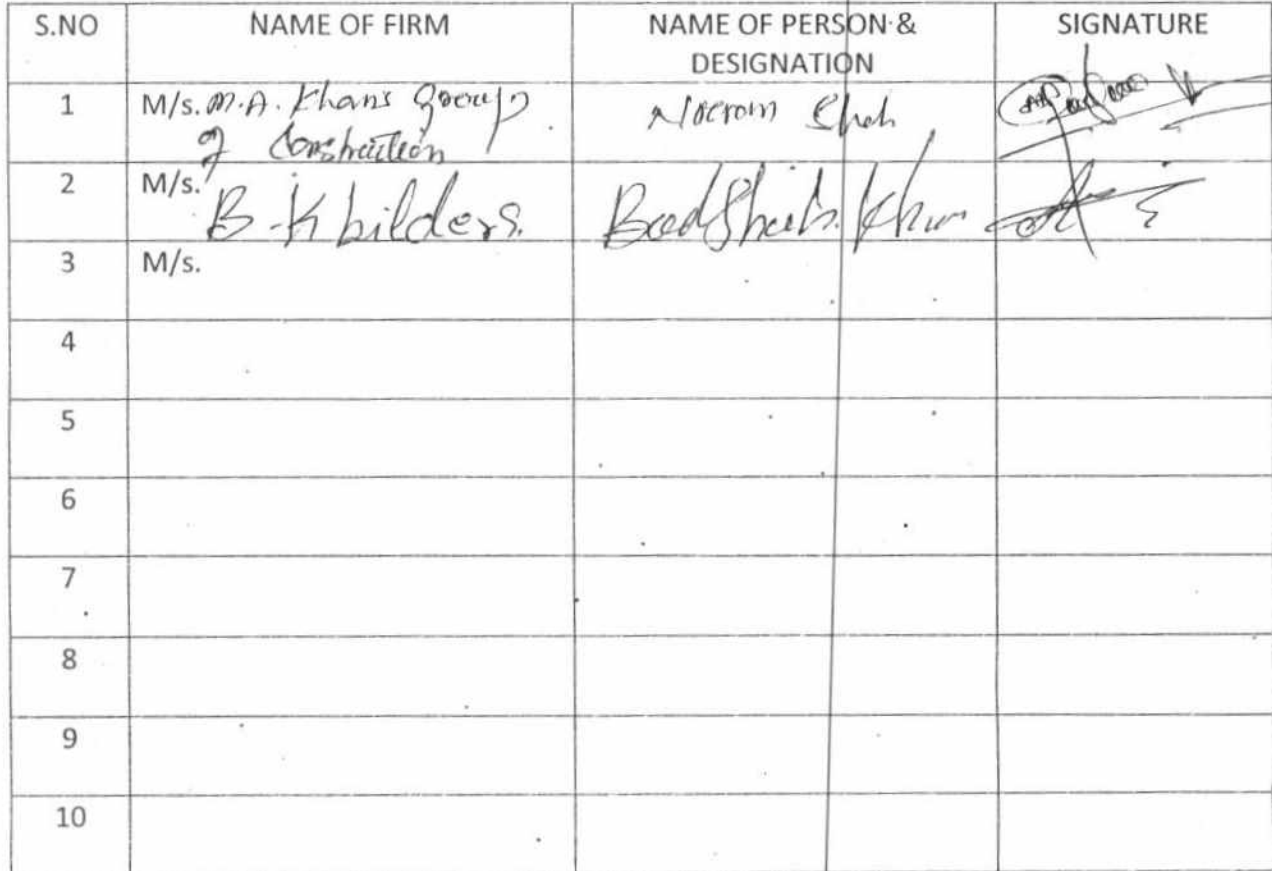 S.NO NAME OF FIRM NAME OF PERSON & SIGNATURE
DESIGNATION
1 M/s. M.A. Khans Group
of Construction
2 M/s.
B-K bilders. Badshah Khan
3 M/s.
4
5
6
7
8
9
10